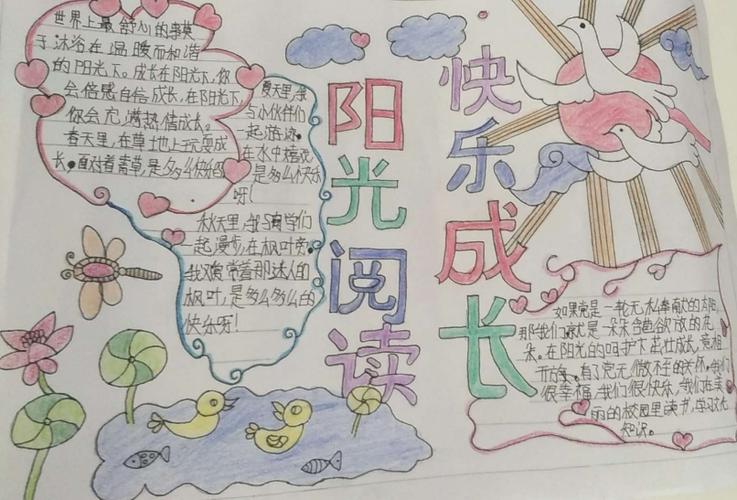 世界上最舒心的事莫
于沐浴在温暖而和谐
的阳光下。成长在阳光下，你
会倍感自信成长。在阳光下，
你会充满热情成长。
春天里，在草地上玩耍成
长。面对着青草，是多么快乐啊
夏天里，亲
与小伙伴们
一起游泳。
在水中嬉戏
是多么快乐
呀！
秋天里，邻与同学们
一起漫步，在枫叶旁。
我观赏着那迷人的
枫叶，是多么多么的
快乐呀！
阳光阅读
快乐成长
如果党是一轮无私奉献的太阳，
那我们就是一朵朵含苞欲放的花
朵。在阳光的呵护下茁壮成长，竞相
开放。有了党无微不至的关怀，我们
很幸福，我们很快乐，我们在美
丽的校园里读书，学习
知识。